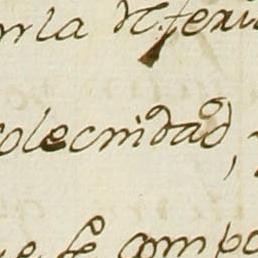 rla referi
olecnidad,
e se compo